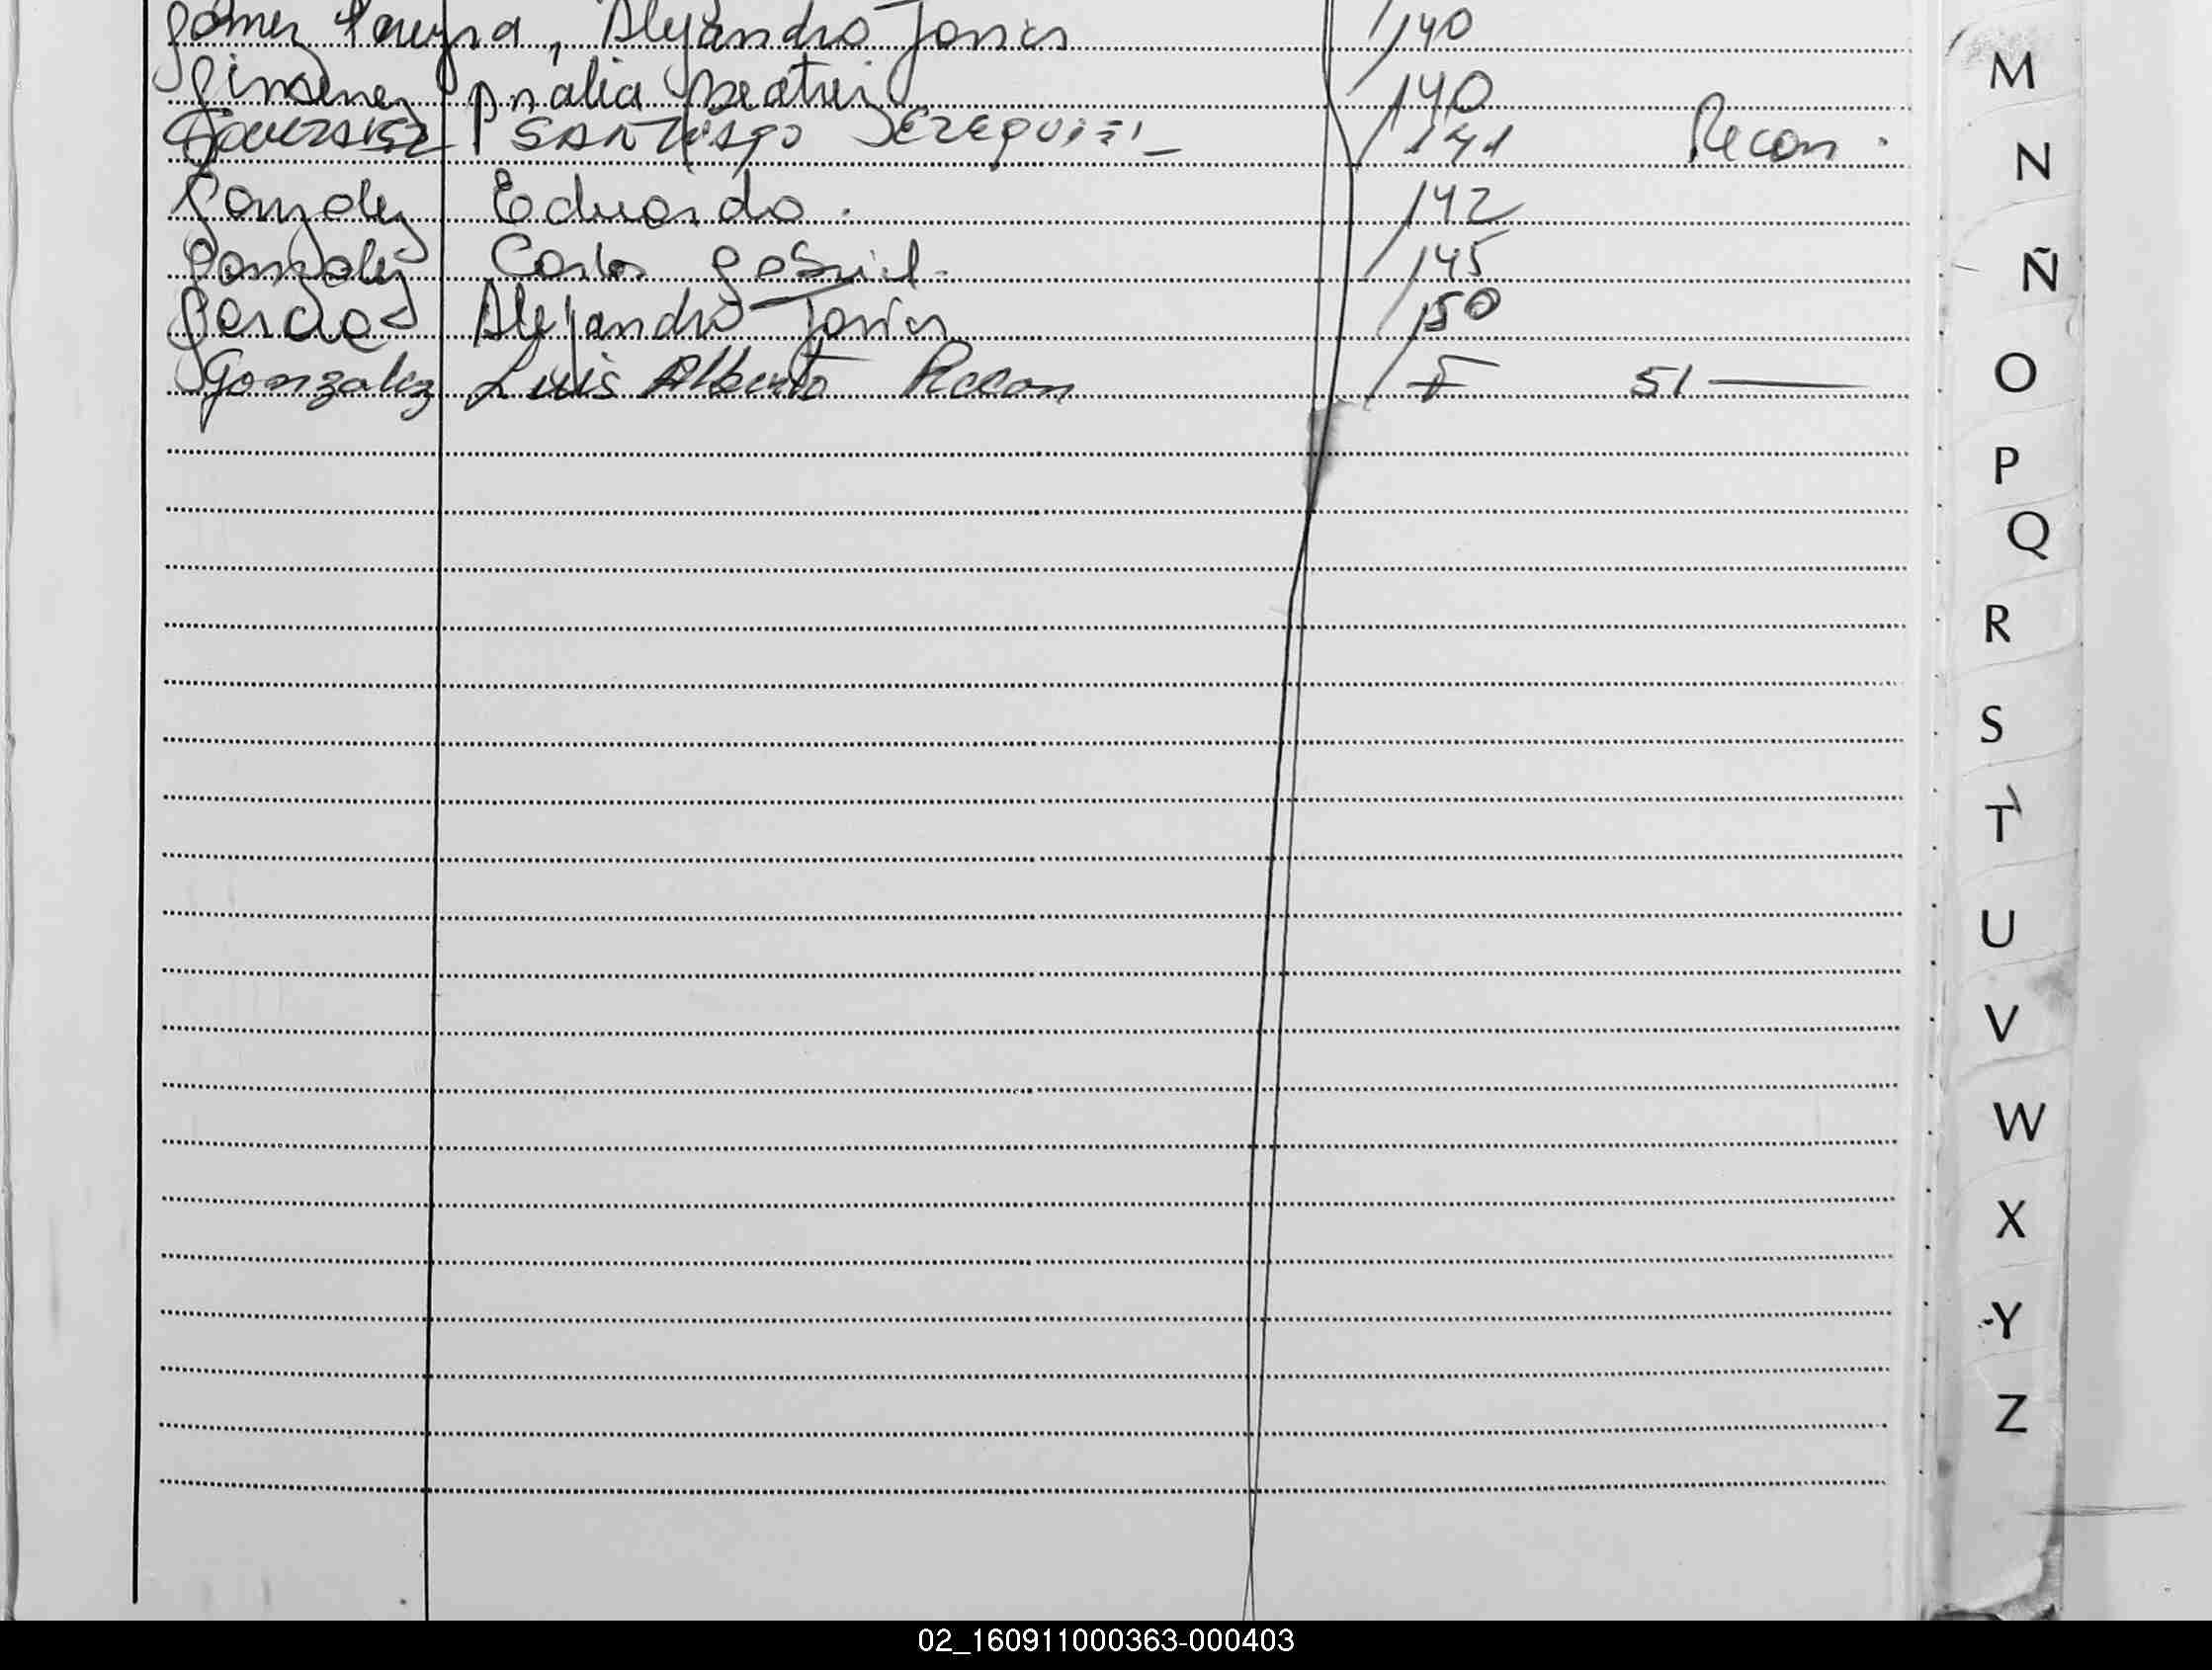 Gomez Pereyra, Alejandro Javier /140
Gimenez Analia Beatriz /140
Gonzalez SANTIAGO EZEQUIEL - /141 Recon.
Gonzalez Eduardo. /142
Gonzalez Carlos Gabriel. /145
Garcia Alejandro Javier /150
Gonzalez Luis Alberto Recon / F 51
M
N
Ñ
O
P
Q
R
S
T
U
V
W
X
Y
Z
02_160911000363-000403